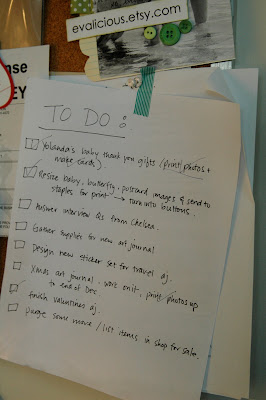 evalicious.etsy.com
nse
EY
TO DO:
Yolanda's baby thank you gifts (print photos +
make cards).
Resize baby, butterfly, postcard images & send to
staples for print → turn into buttons.
Answer interview Qs from Chelsea.
Gather supplies for new art journal
Design new sticker set for travel aj.
Xmas art journal, work on it, print photos up
to end of Dec.
finish valentines aj.
Purge some more / list items in shop for sale.